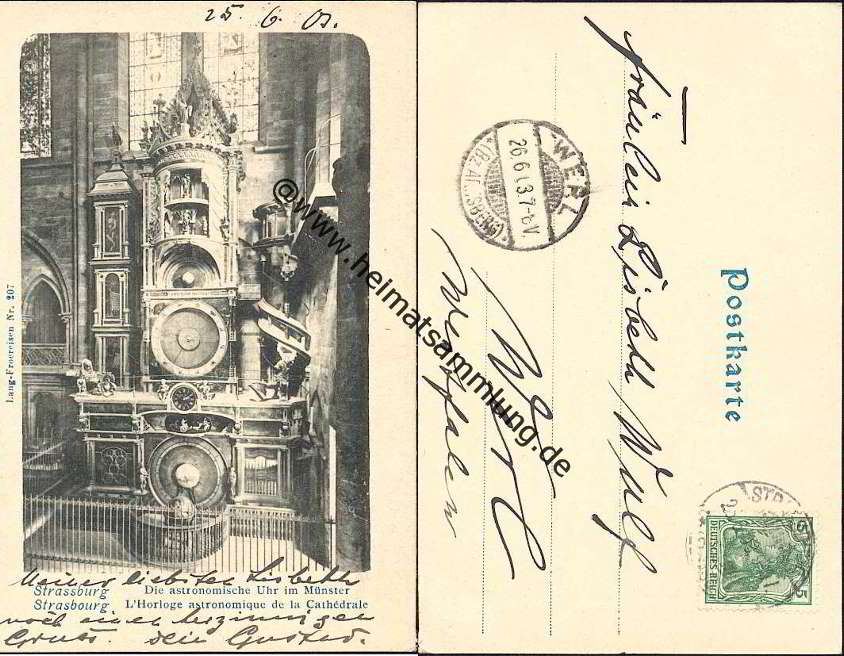 25. 6. 03.
Lang-Froereisen Nr. 207
Meiner liebsten Lisbeth
Strassburg Die astronomische Uhr im Münster
Strasbourg L'Horloge astronomique de la Cathédrale
noch einen herzinnigen
Gruss. Dein Gustav.
@www.heimatsammlung.de
Postkarte
Fräulein Lisbeth Wulf
Werl
Westfalen
WERL
26.6.03.7-8V.
STR
5 5
DEUTSCHES REICH